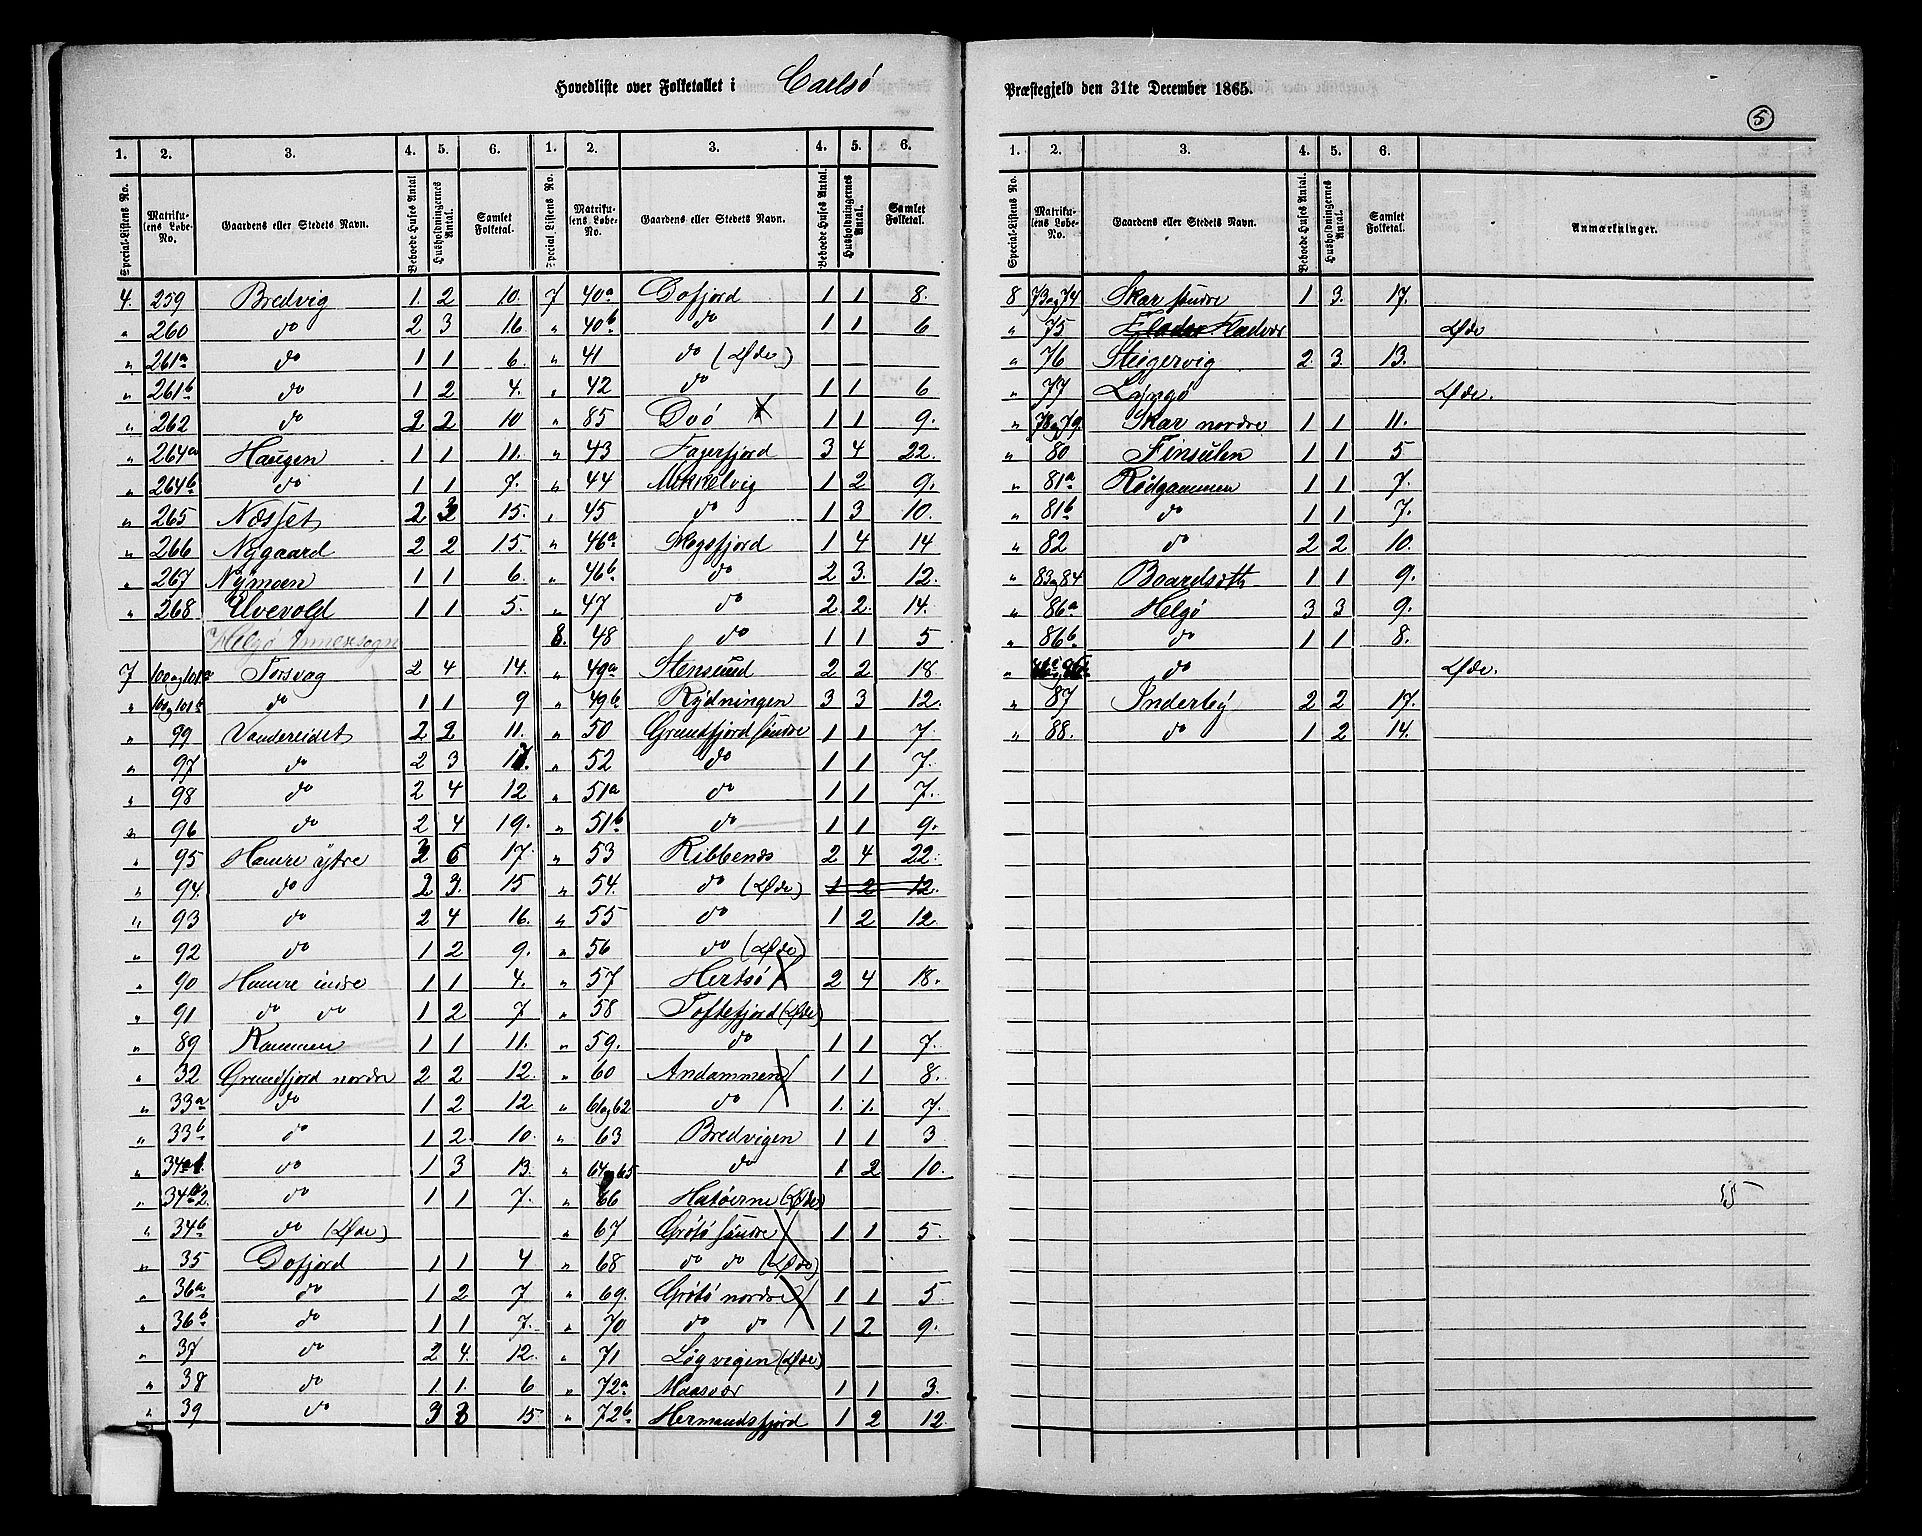 Hovedliste over Folketallet i Carlsö
1. 2. 3. 4. 5. 6. 1. 2. 3. 4. 5. 6.
Special-Listens No. Matrikulens Løbe-No. Gaardens eller Stedets Navn. Beboede Huses Antal Husholdningernes Antal. Samlet Folketal. Special-Listens No. Matrikulens Løbe-No. Gaardens eller Stedets Navn. Beboede Huses Antal. Husholdningernes Antal. Samlet Folketal.
4. 259 Bredvig 1. 2 10. 7 40a Dofjord 1 1 8.
" 260 do 2 3 16 " 40b do 1 1 6
" 261a do 1 1 6. " 41 do (Øde)
" 261b do 1 2 4. " 42 do 1 1 6
" 262 do 2 2 10 " 85 Dvö 1 1 9.
" 264a Haugen 1 1 11. " 43 Fagerfjord 3 4 22.
" 264b do 1 1 7. " 44 Mikkelvig 1 2 9.
" 265 Næsset 2 3 15. " 45 do 1 3 10.
" 266 Nygaard 2 2 15. " 46a Skogsfjord 1 4 14
" 267 Nymoen 1 1 6. " 46b do 2 3. 12.
" 268 Elvevold 1 1 5. " 47 do 2 2. 14.
Helgö Annexsogn 8. 48 do 1 1 5
7 100 og 101a Torsvag 2 4 14. " 49a Stensund 2 2 18
" 100 og 101b do 1 1 9 " 49b Rydningen 3 3 12.
" 99 Vandereidet 2 2 11. " 50 Grundfjord söndre 1 1 7.
" 97 do 2 3 17. " 52 do 1 1 7.
" 98 do 2 4 12 " 51a do 1 1 7.
" 96 do 2 4 19. " 51b do 1 1 9.
" 95 Hamre ytre 3 6 17. " 53 Ribbenæs 2 4 22.
" 94. do 2 3. 15 " 54. do (Øde) 1 2 12.
" 93 do 2 4 16. " 55 do 1 2 12.
" 92 do 1 2 9. " 56 do (Øde)
" 90 Hamre indre 1 1 4. " 57 Hertsö 2 4 18.
" 91 do do 1 2 7 " 58 Toftefjord (Øde)
" 89 Kammen 1 1 11. " 59. do 1 1 7.
" 32 Grundfjord nordre 2 2 12. " 60 Andammen 1 1 8.
" 33a do 1 2 12 " 61 og 62 do 1. 1. 7.
" 33b do 1 2. 10. " 63 Bredvigen 1 1 3
" 34a1. do 1 3 13. " 64 og 65 do 1. 2 10.
" 34a2. do 1 1 7. " 66 Hatöerne (Øde)
" 34b do (Øde) " 67 Grötö söndre 1 1 5.
" 35 Dofjord 1 1 4 " 68 do do (Øde)
" 36a do 1 2 7 " 69. Grötö nordre 1 1 5
" 36b do 1 1 7. " 70 do do 1 2 9.
" 37 do 2 4. 12. " 71 Lögvigen (Øde)
" 38 do 1 1. 6 " 72a Maasvær 1 1 3.
" 39 do 3 3 15 " 72b Hermandsfjord 1 2 12.
Præstegjeld den 31te December 1865.
5
1. 2. 3. 4. 5. 6.
Special-Listens No. Matrikulens Løbe-No. Gaardens eller Stedets Navn. Beboede Huses Antal. Husholdningernes Antal. Samlet Folketal. Anmærkninger.
8 73 og 74 Skar söndre 1 3. 17.
" 75 Fladvær Øde
" 76 Steigervig 2. 3. 13.
" 77 Lyngö Øde.
" 78 og 79. Skar nordre 1 1 11.
" 80 Finsulen 1 1 5
" 81a Rödgammen 1 1 7.
" 81b do 1 1 7.
" 82 do 2 2 10.
" 83 og 84 Baardseth 1 1 9.
" 86a Helgö 3 3 9.
" 86b do 1 1 8.
" do Øde.
" 87 Inderby 2 2 17.
" 88. do 1 2 14.